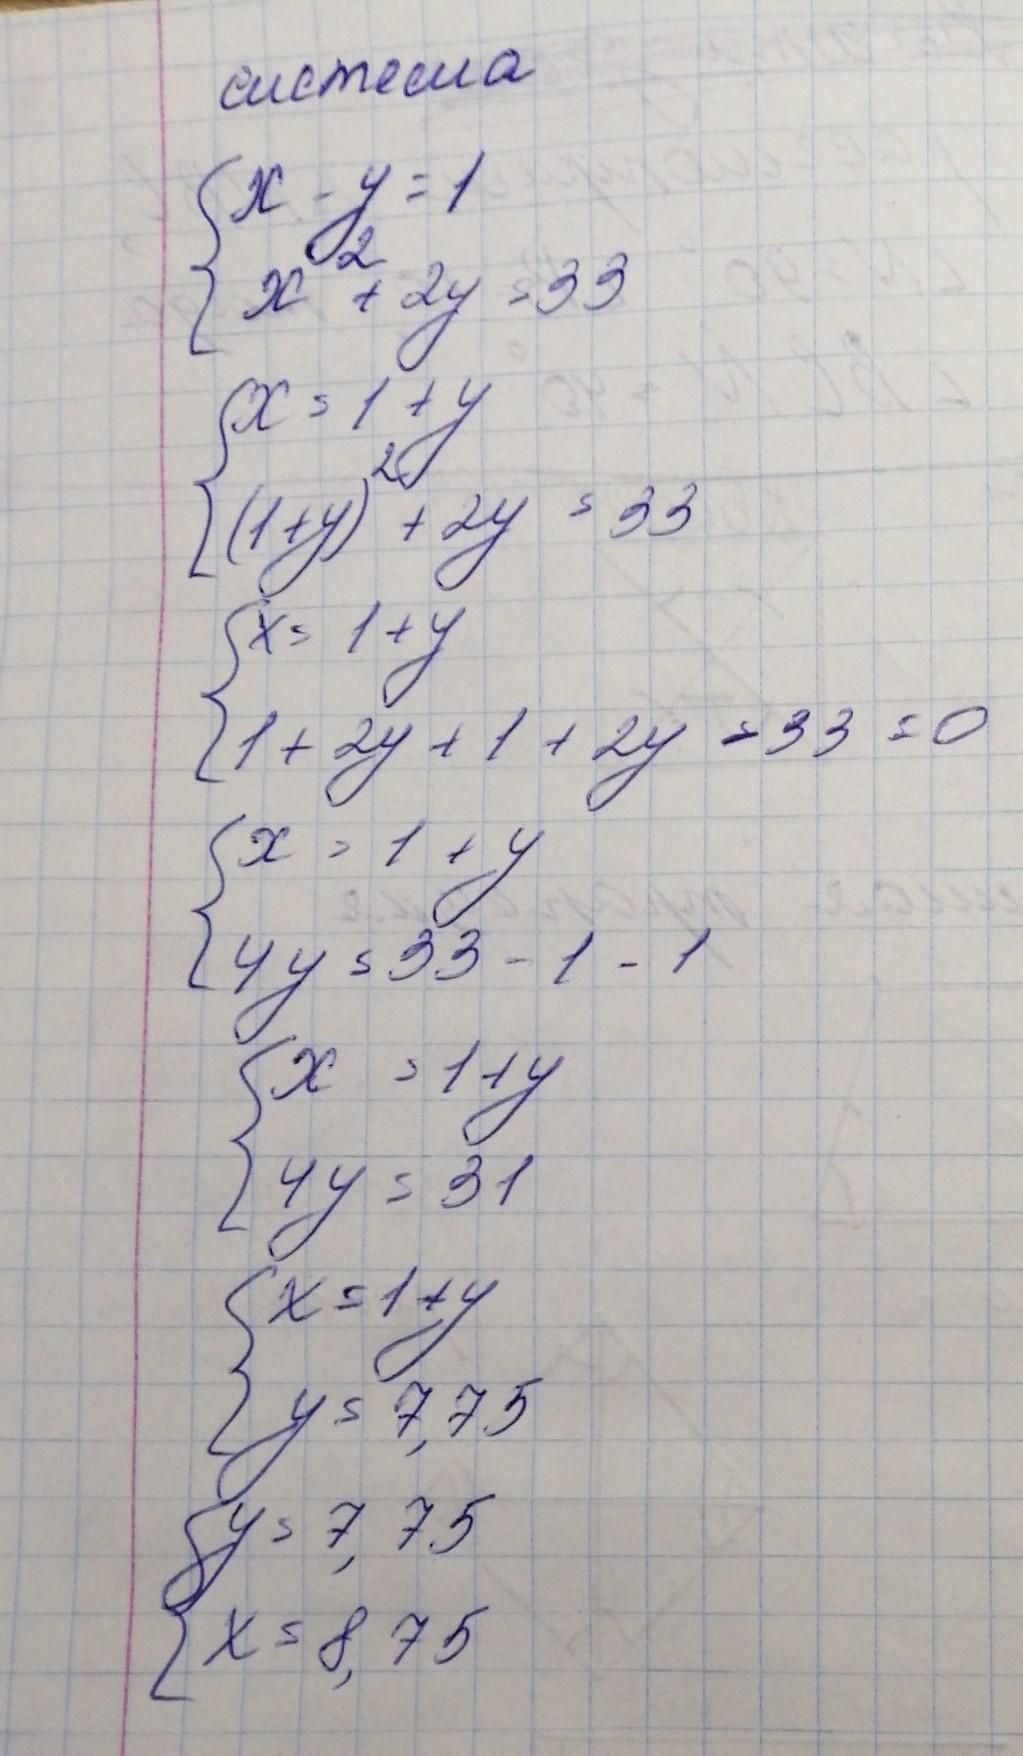 система
x - y = 1
x² + 2y = 33
x = 1 + y
(1+y)² + 2y = 33
x = 1 + y
1 + 2y + 1 + 2y - 33 = 0
x = 1 + y
4y = 33 - 1 - 1
x = 1 + y
4y = 31
x = 1 + y
y = 7,75
y = 7,75
x = 8,75